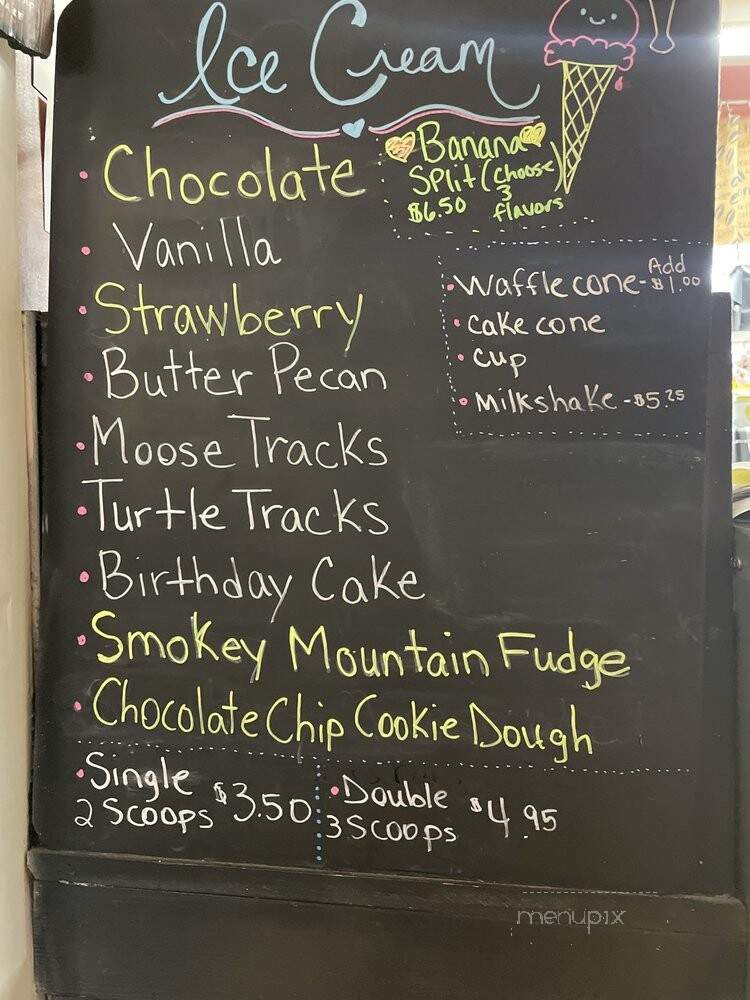 Ice Cream
• Chocolate
Banana
Split (choose
$6.50 3
flavors
• Vanilla
• Strawberry
• Butter Pecan
• Moose Tracks
• Turtle Tracks
• Birthday Cake
• Smokey Mountain Fudge
• Chocolate Chip Cookie Dough
Add
• Waffle cone - $1.00
• cake cone
• cup
• Milkshake - $5.25
• Single
2 Scoops $3.50
• Double
3 Scoops $4.95
menupix